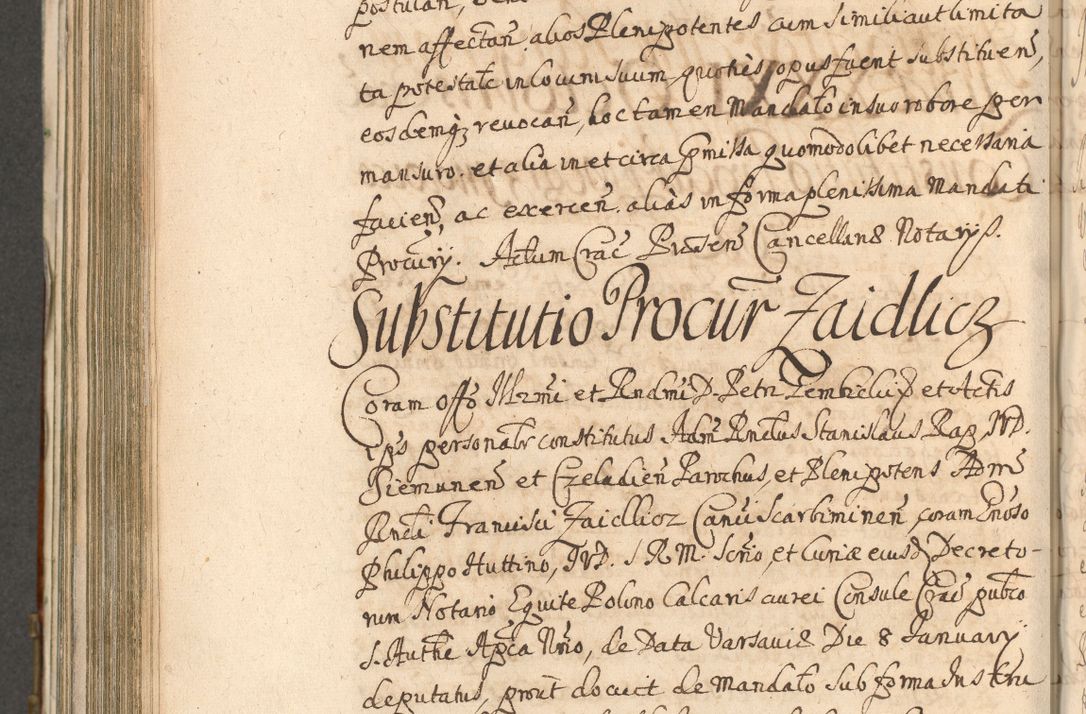 nem affectan̄. alios Plenipotentes cum simili aut limita
ta potestate in locum suum, quoties opus fuerit substituen̄,
eosdemq; revocan̄, hoc tamen Mandato in suo robore per
mansuro. et alia in et circa p̄missa quomodolibet necessaria
facien̄, ac exercen̄. alias in forma plenissima Mandati
Procurỹ. Actum Crac̄ Pr̄sen̄ Cancellariæ Notarijs.
Substitutio Procur̄ Zaidlicz
Coram offo Illr̄mi et Rndmi D. Petri Zembrzuski et Actis
personalr̄ constitutus Adm̄ Rndus Stanislaus Rap JUD.
Siemunen̄ et Czeladien̄ Parochus, et Plenipotens Adm̄
Rndi Francisci Zaidlicz Can̄ci Scarbimirien̄, coram Gnōso
Philippo Huttino, JUD. S. R. M. Scrio, et Curiæ eiusd̄ Decreto-
rum Notario Equite Polono Calcaris aurei Consule Crac̄ pubco
S. Authē Ap̄ca Nrio, de Data Varsaviæ Die 8 January
deputatus, prout docuit de Mandato sub forma Instru